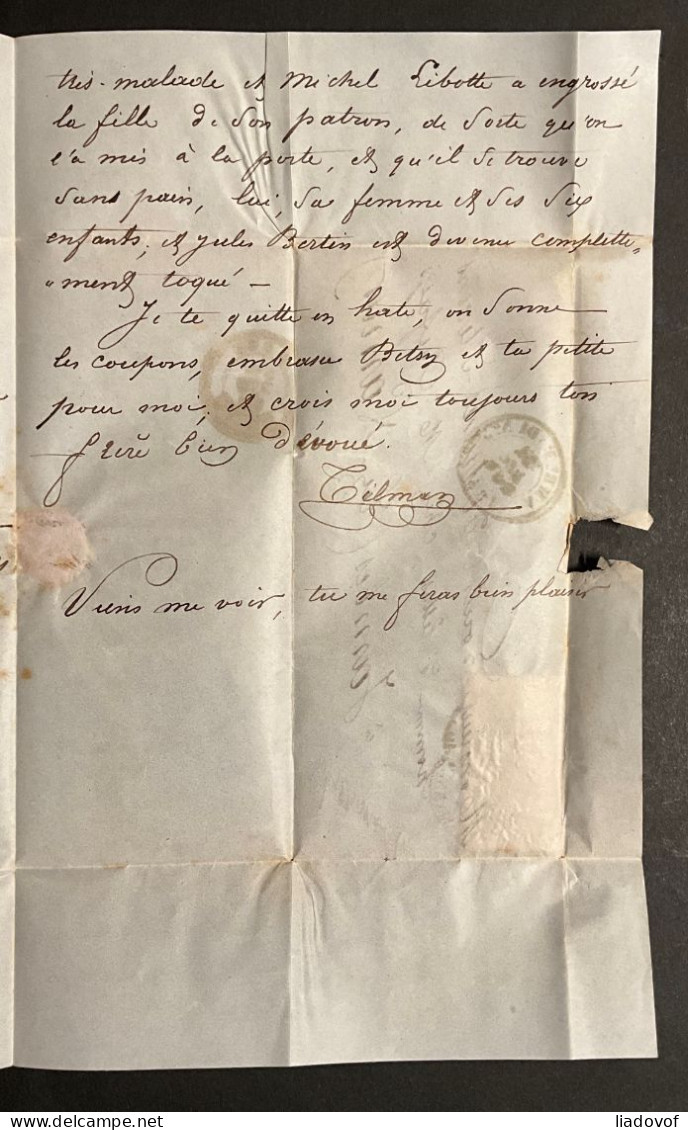 très-malade et Michel Libotte a engrossé
la fille de son patron, de sorte qu'on
l'a mis à la porte, et qu'il se trouve
sans pain, lui, sa femme et ses six
enfants; et Jules Bertin est devenu complette-
"ment toqué —
Je te quitte en hate, on sonne
les coupons, embrasse Betsy et ta petite
pour moi, et crois moi toujours ton
frère bien dévoué.
Tilman
Viens me voir, tu me feras bien plaisir
delcampe.net
liadovof